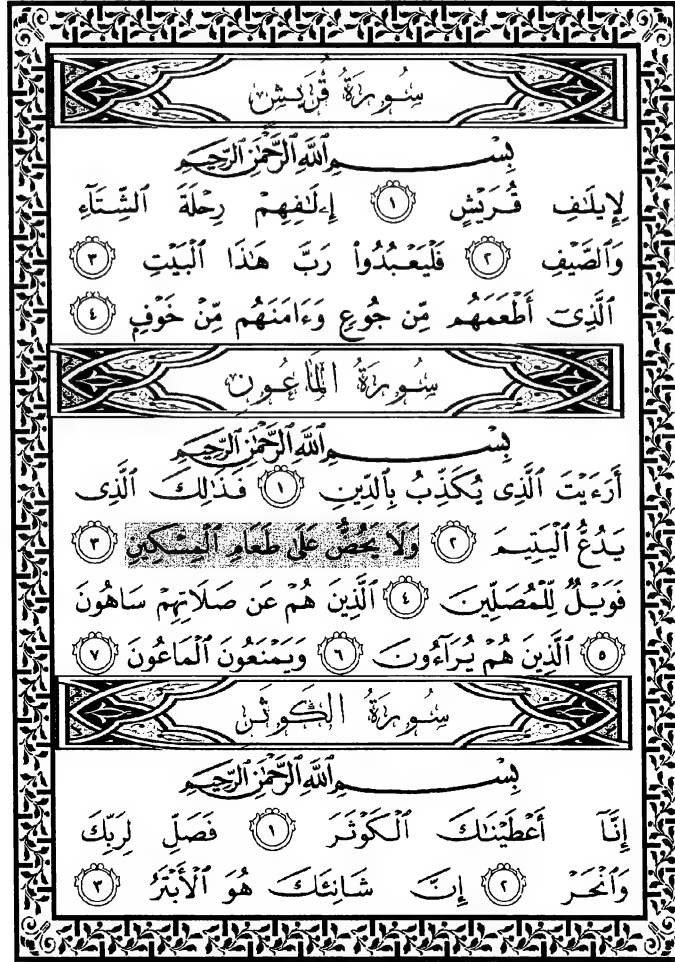 سُورَةُ قُرَيْشٍ
بِسْمِ ٱللَّهِ ٱلرَّحْمَٰنِ ٱلرَّحِيمِ
لِإِيلَٰفِ قُرَيْشٍ ١ إِۦلَٰفِهِمْ رِحْلَةَ ٱلشِّتَآءِ
وَٱلصَّيْفِ ٢ فَلْيَعْبُدُوا۟ رَبَّ هَٰذَا ٱلْبَيْتِ ٣
ٱلَّذِىٓ أَطْعَمَهُم مِّن جُوعٍ وَءَامَنَهُم مِّنْ خَوْفٍۭ ٤
سُورَةُ الْمَاعُونِ
بِسْمِ ٱللَّهِ ٱلرَّحْمَٰنِ ٱلرَّحِيمِ
أَرَءَيْتَ ٱلَّذِى يُكَذِّبُ بِٱلدِّينِ ١ فَذَٰلِكَ ٱلَّذِى
يَدُعُّ ٱلْيَتِيمَ ٢ وَلَا يَحُضُّ عَلَىٰ طَعَامِ ٱلْمِسْكِينِ ٣
فَوَيْلٌ لِّلْمُصَلِّينَ ٤ ٱلَّذِينَ هُمْ عَن صَلَاتِهِمْ سَاهُونَ
٥ ٱلَّذِينَ هُمْ يُرَآءُونَ ٦ وَيَمْنَعُونَ ٱلْمَاعُونَ ٧
سُورَةُ الْكَوْثَرِ
بِسْمِ ٱللَّهِ ٱلرَّحْمَٰنِ ٱلرَّحِيمِ
إِنَّآ أَعْطَيْنَٰكَ ٱلْكَوْثَرَ ١ فَصَلِّ لِرَبِّكَ
وَٱنْحَرْ ٢ إِنَّ شَانِئَكَ هُوَ ٱلْأَبْتَرُ ٣